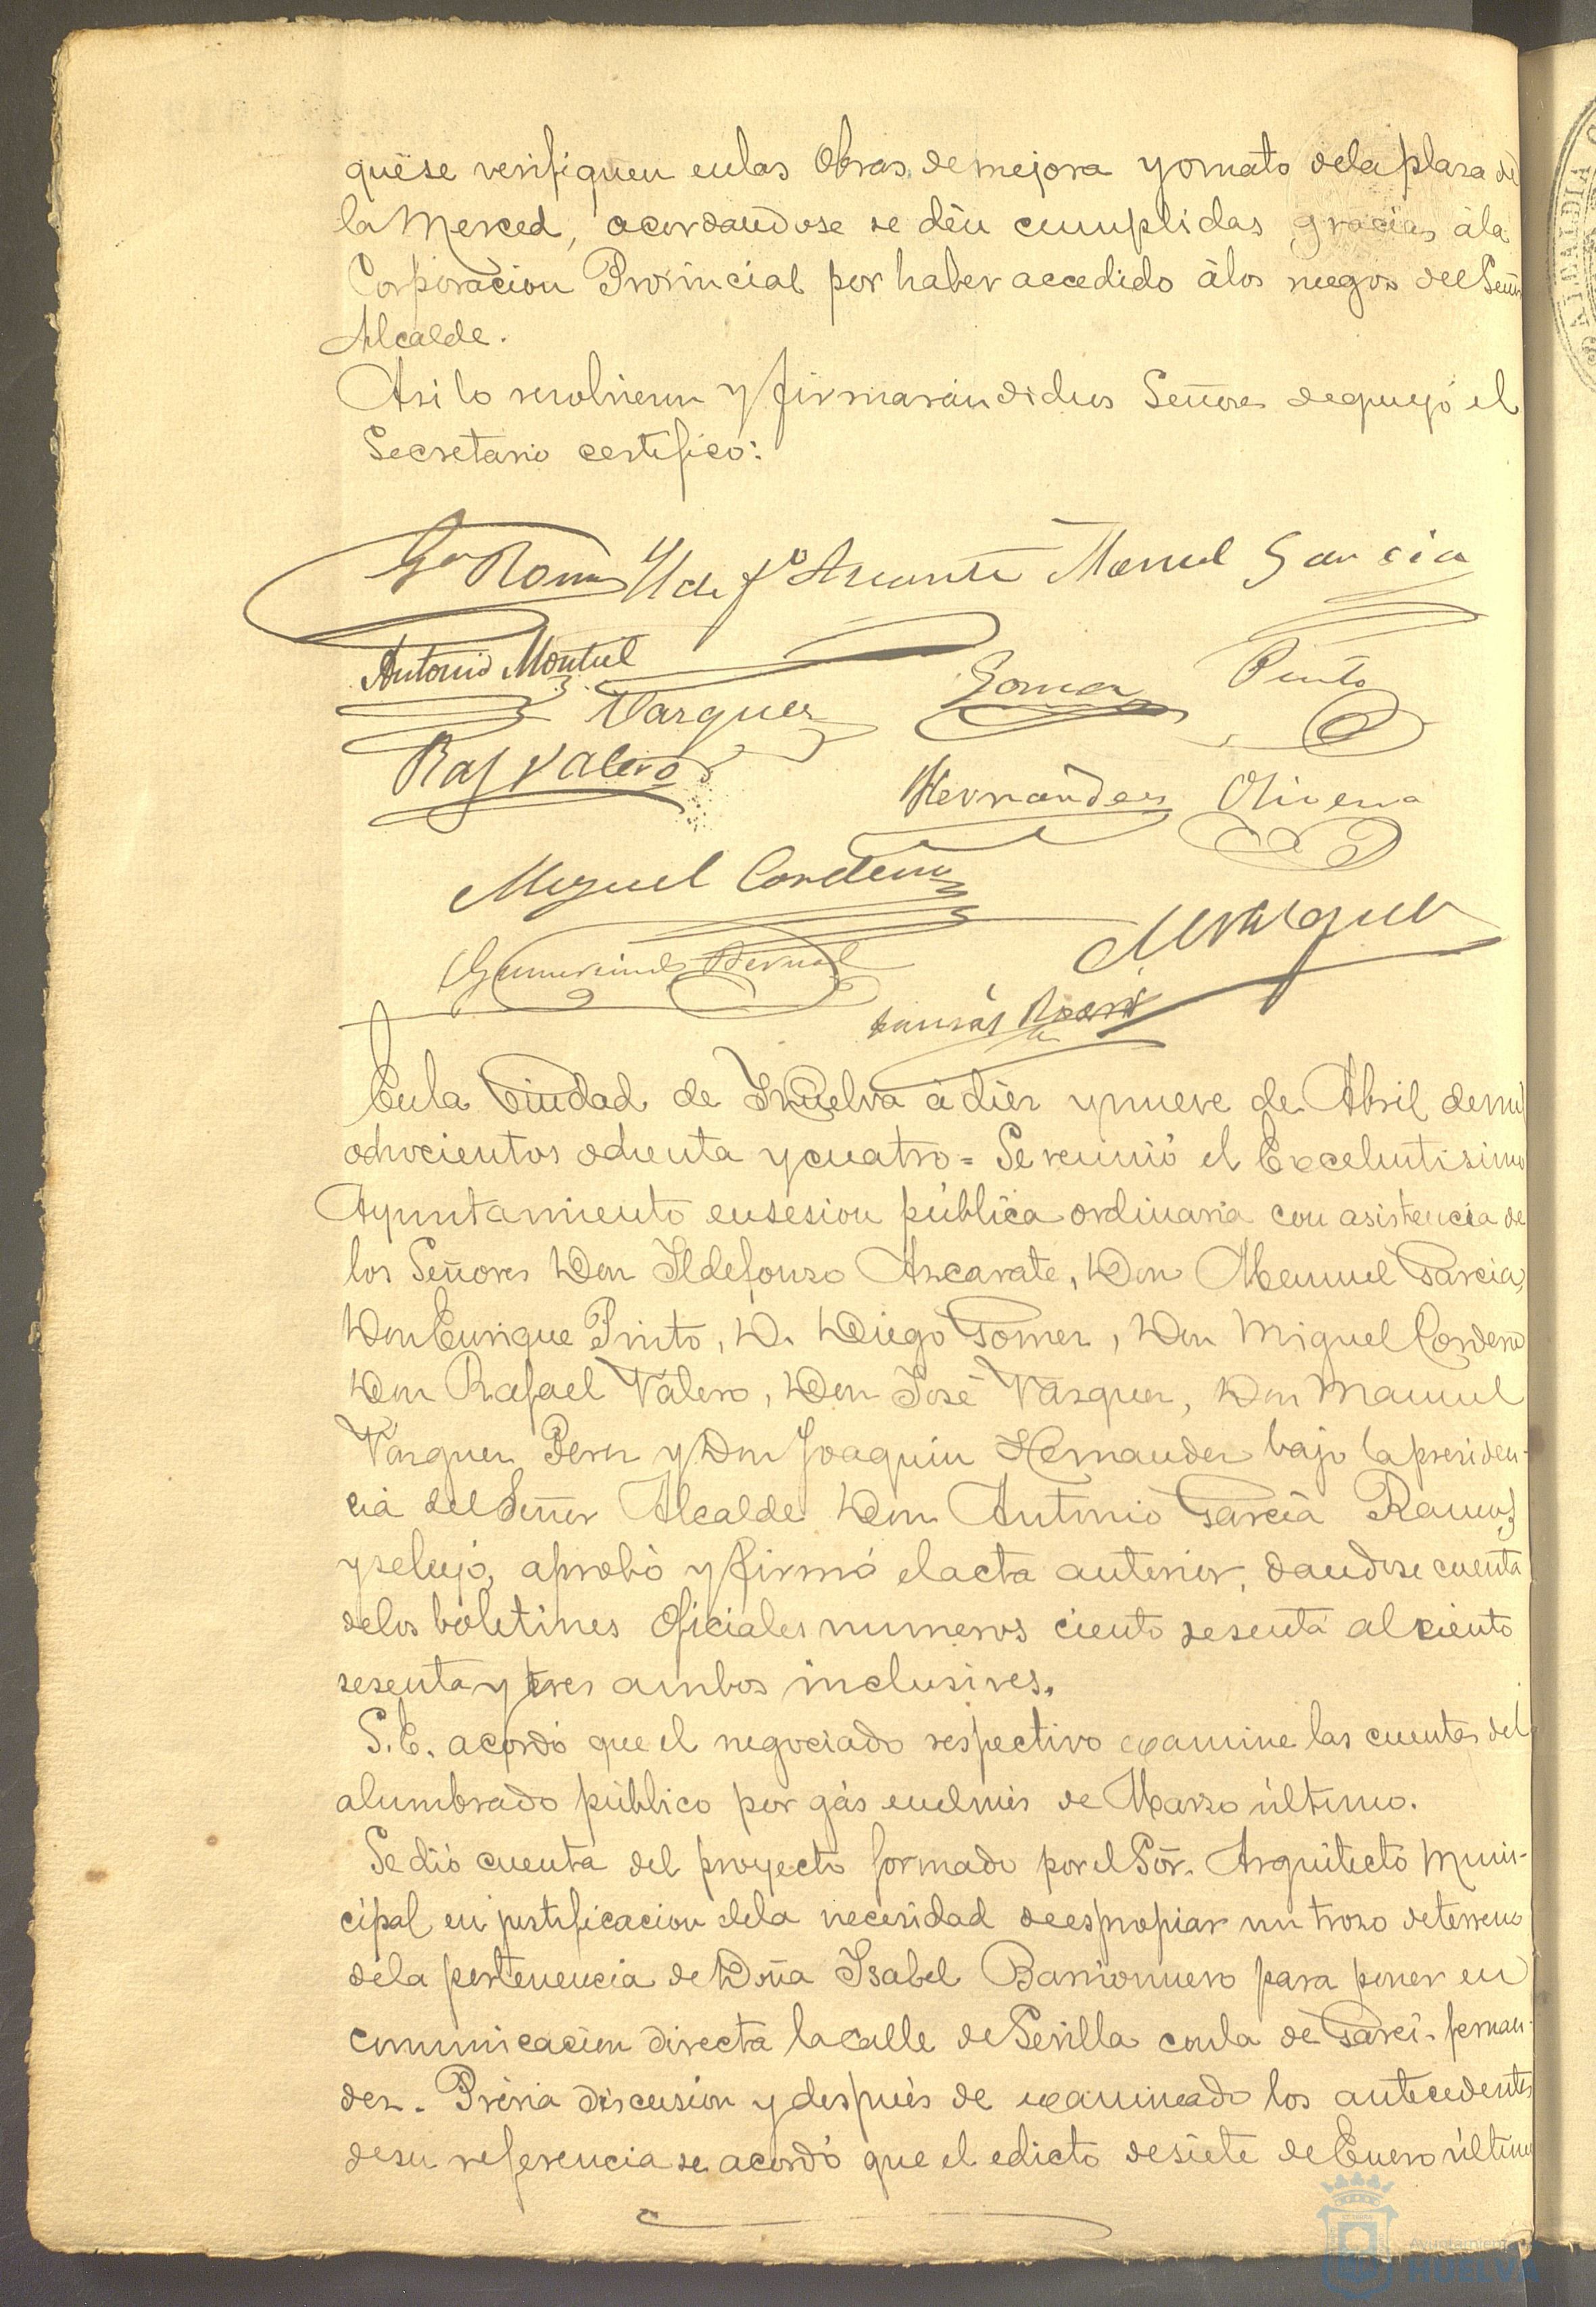 que se verifiquen en las Obras de mejora y ornato de la plaza de
la Merced, acordandose se dén cumplidas gracias á la
Corporacion Provincial por haber accedido á los ruegos del Señor
Alcalde.
Asi lo resolvieron y firmarán dichos Señores de que yó el
Secretario certifico:
Manuel Garcia
Antonio Montiel
Vazquez Gomez Pinto
Raf Valero
Hernández Olivera
Miguel Cordero
M Vazquez
Gumersindo Bernal
En la Ciudad de Huelva á diez y nueve de Abril de mil
ochocientos ochenta y cuatro = Se reunió el Excelentisimo
Ayuntamiento en sesion pública ordinaria con asistencia de
los Señores Don Ildefonso Azcarate, Don Manuel Garcia,
Don Enrique Pinto, D. Diego Gomez, Don Miguel Cordero
Don Rafael Valero, Don José Vazquez, Don Manuel
Vázquez Perez y Don Joaquin Hernandez bajo la presiden-
cia del Señor Alcalde Don Antonio García Ramos
y se leyó, aprobó y firmó el acta anterior, dandose cuenta
de los boletines Oficiales numeros ciento sesenta al ciento
sesenta y tres ambos inclusives.
S. E. acordó que el negociado respectivo examine las cuentas del
alumbrado público por gás en el mes de Marzo último.
Se dió cuenta del proyecto formado por el Sõr. Arquitecto Muni-
cipal en justificacion de la necesidad de espropiar un trozo de terreno
de la pertenencia de Doña Isabel Barrionuevo para poner en
comunicacion directa la calle de Sevilla con la de Garci-fernan-
dez. Prévia discusion y después de examinado los antecedentes
de su referencia se acordó que el edicto de siete de Enero último
Ayuntamiento
HUELVA